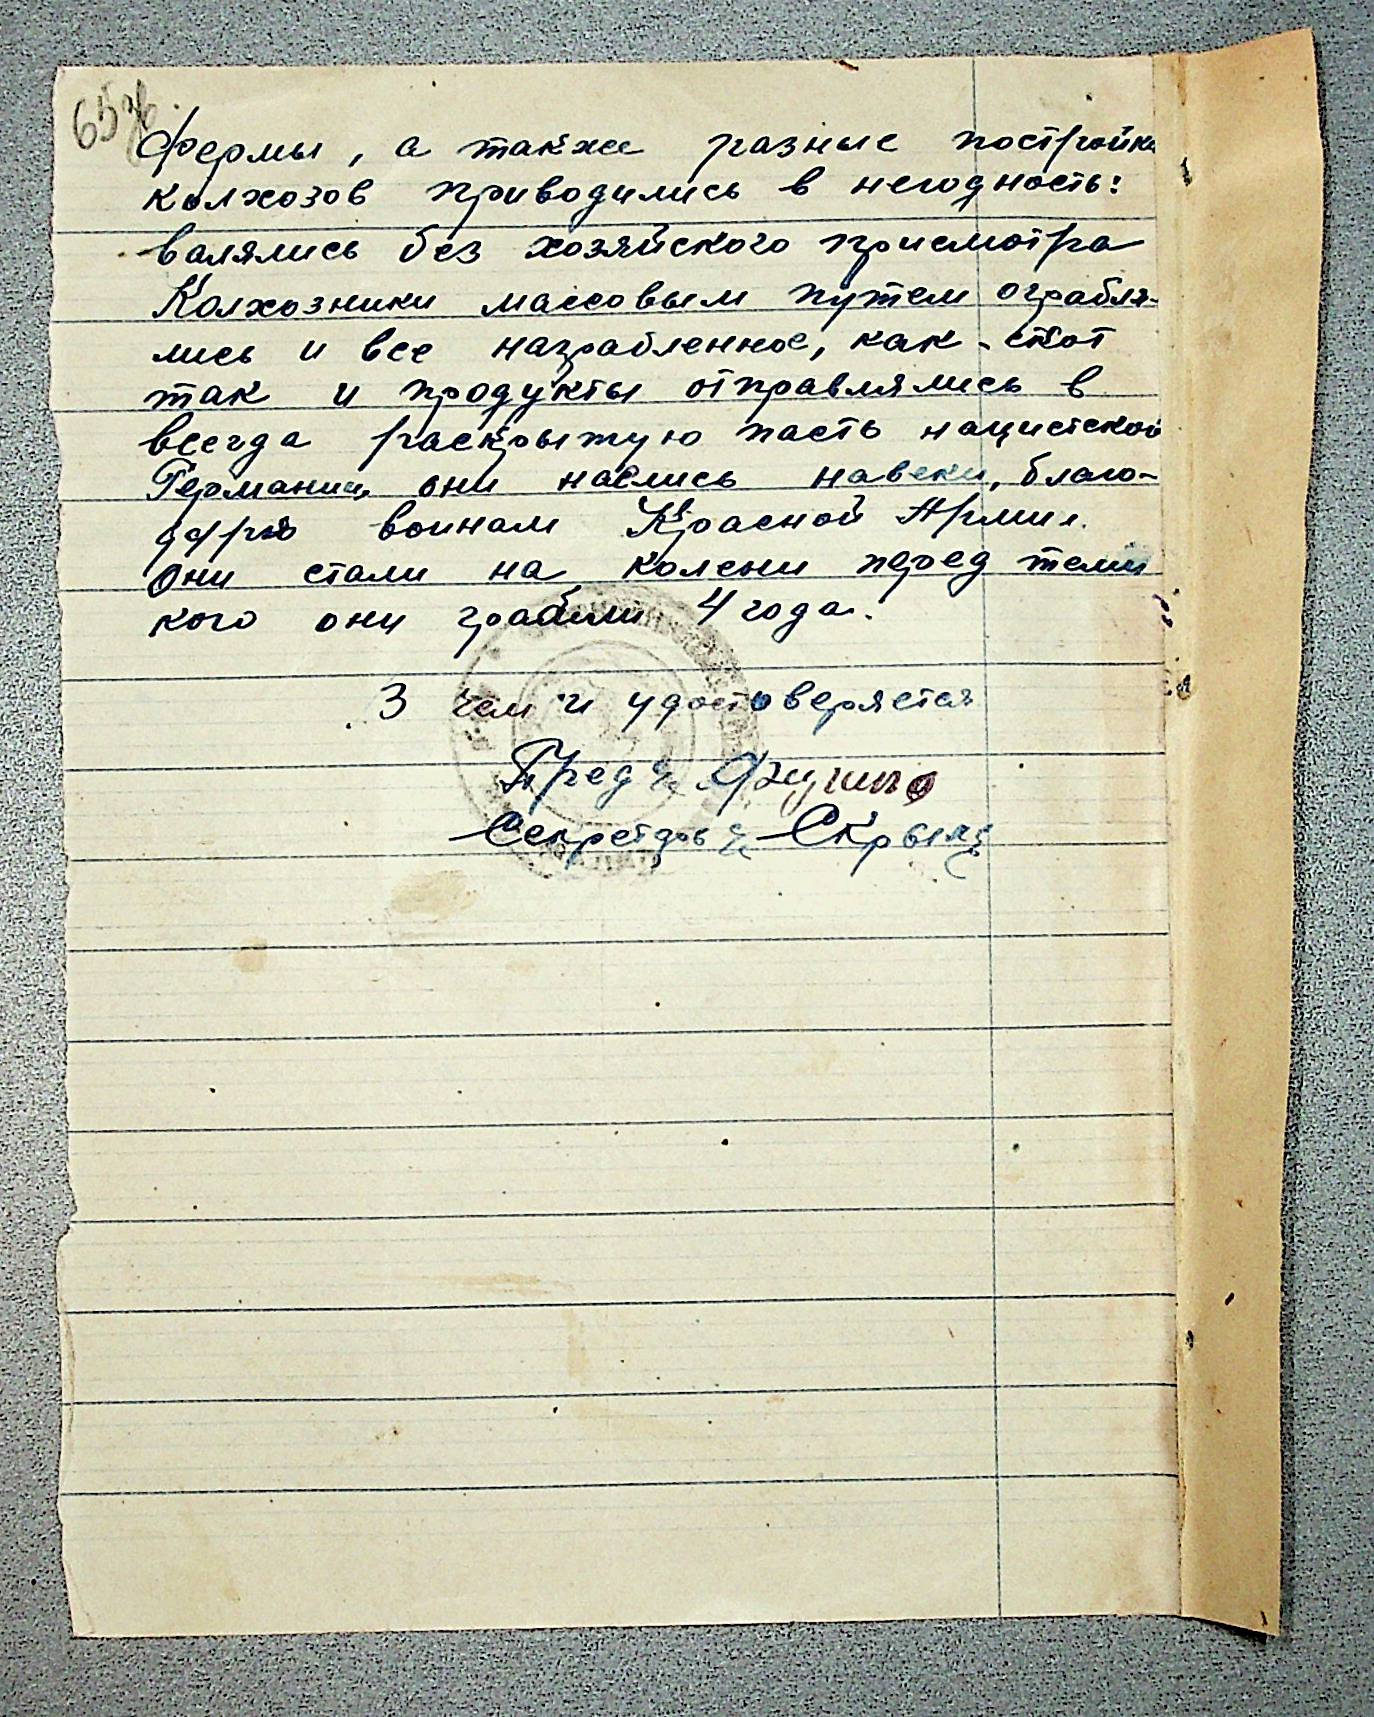 65
фермы, а также разные постройки
колхозов приводились в негодность:
валялись без хозяйского присмотра
Колхозники массовым путем ограбля-
лись и все награбленное, как - скот
так и продукты отправлялись в
всегда раскрытую пасть нацистской
Германии, они наелись навеки, благо-
даря воинам Красной Армии.
Они стали на колени перед теми
кого они грабили 4 года.
З чем и удостоверяется
Пред
Секретарь